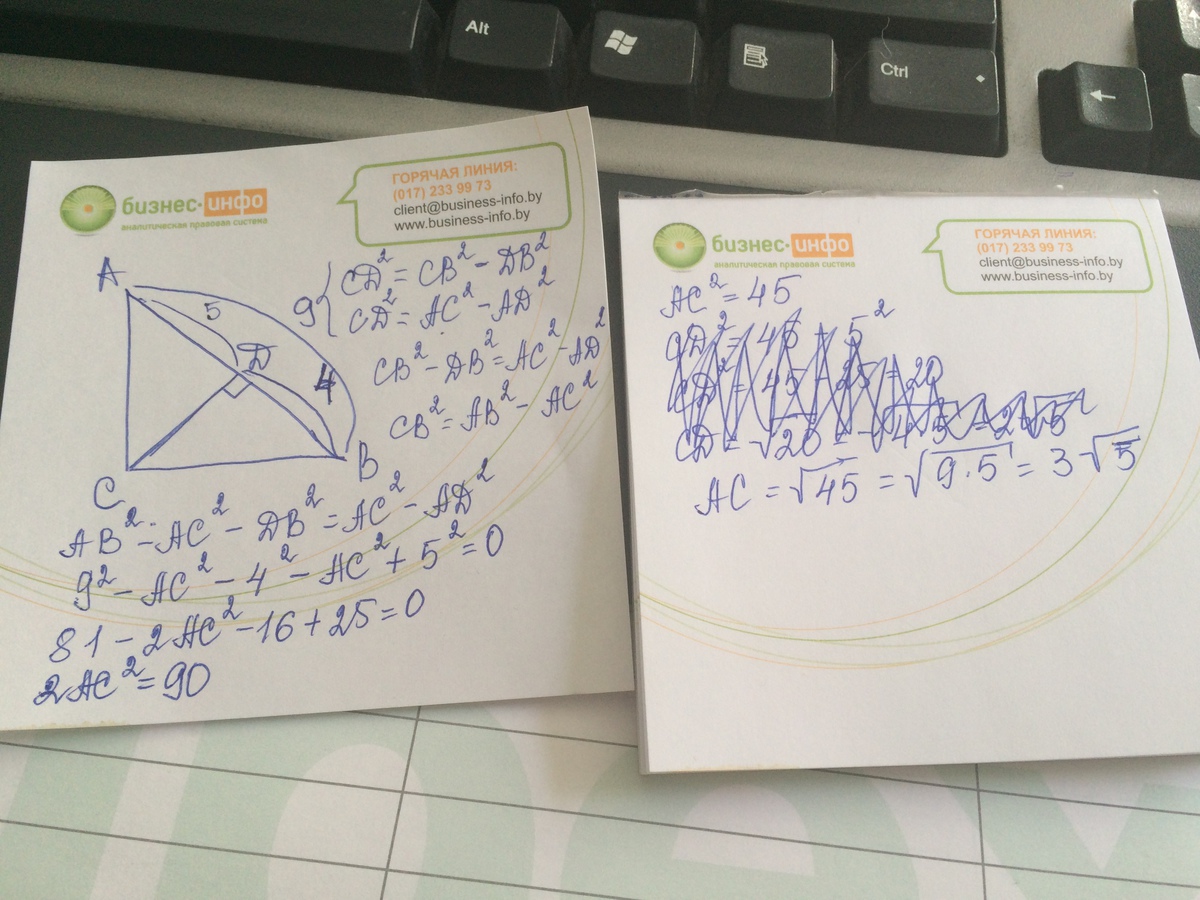 Alt
Ctrl
бизнес-инфо
аналитическая правовая система
ГОРЯЧАЯ ЛИНИЯ:
(017) 233 99 73
client@business-info.by
www.business-info.by
A
5
D
4
B
C
9
CD² = CB² - DB²
CD² = AC² - AD²
CB² - DB² = AC² - AD²
CB² = AB² - AC²
AB² - AC² - DB² = AC² - AD²
9² - AC² - 4² - AC² + 5² = 0
81 - 2AC² - 16 + 25 = 0
2AC² = 90
бизнес-инфо
аналитическая правовая система
ГОРЯЧАЯ ЛИНИЯ:
(017) 233 99 73
client@business-info.by
www.business-info.by
AC² = 45
CD² = 45 - 5²
CD² = 45 - 25 = 20
CD = √20 = √4·5 = 2√5
AC = √45 = √9·5 = 3√5